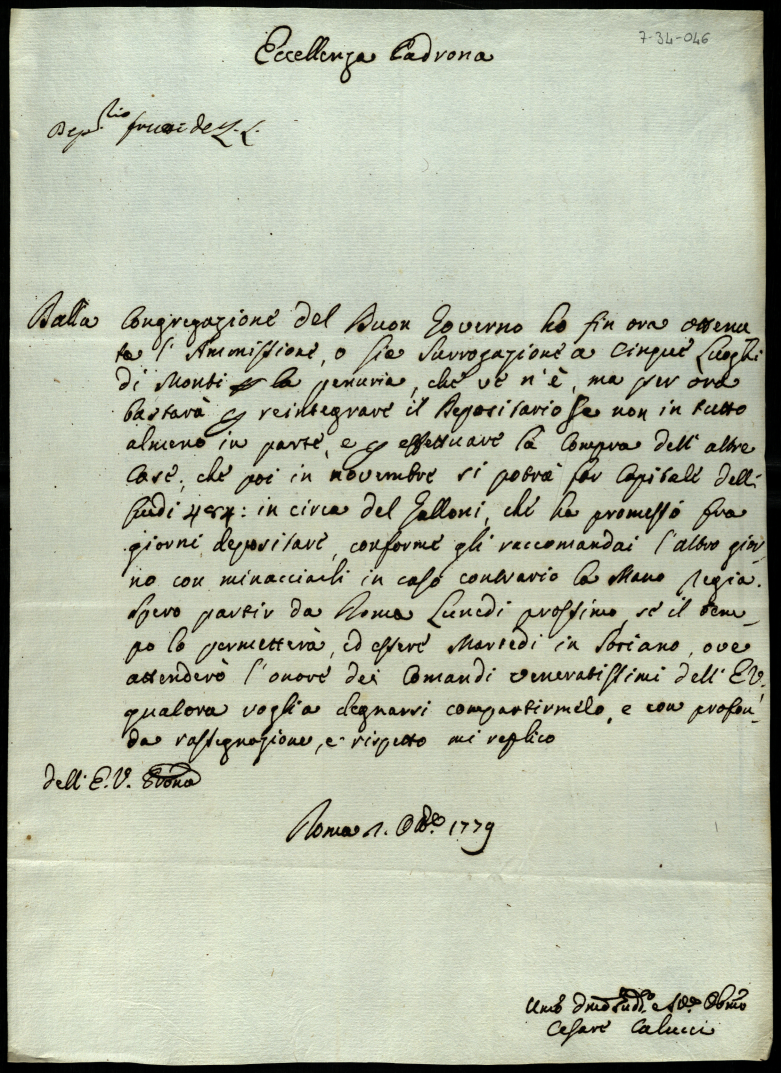 7-34-046
Eccellenza Padrona
Dalla Congregazione del Buon Governo ho fin ora ottenu
ta l'Ammissione, o sia Surrogazione a cinque Luoghi
di Monti la penuria, che ve n'è, ma per ora
bastarà reintegrare il Depositario se non in tutto
almeno in parte, e effettuare la compra dell'altre
Case, che poi in novembre si potrà far Capitale delli
scudi in circa del Galloni, che ha promesso fra
giorni depositare, conforme gli raccomandai l'altro gior-
no con minacciarli in caso contrario la Mano Regia.
Spero partir da Roma Lunedì prossimo, se il tem-
po lo permetterà, ed essere Martedì in Soriano, ove
attenderò l'onore dei Comandi veneratissimi dell'E.V.
qualora voglia degnarsi compartirmelo, e con profon-
da rassegnazione, e rispetto mi replico
dell'E.V.
Roma 1779
Cesare Calucci